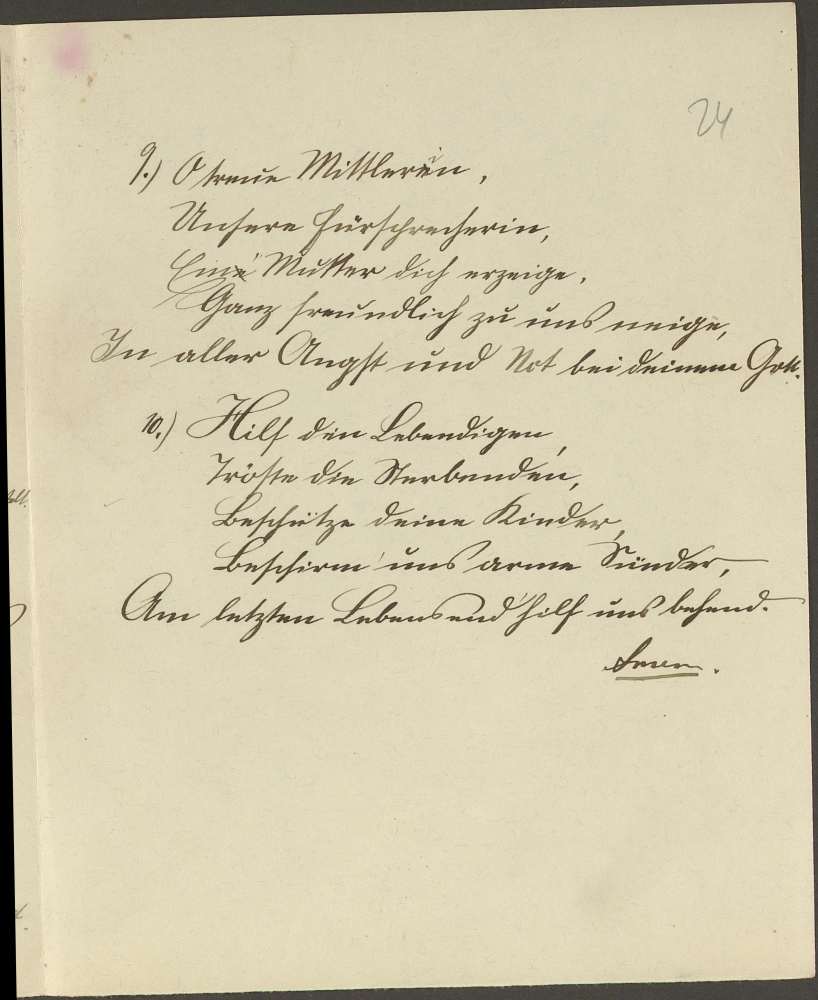 24
9.) O treue Mittlerin,
Unsere Fürsprecherin,
Eine Mutter dich erzeige,
Ganz freundlich zu uns neige,
In aller Angst und Not bei deinem Gott.
10.) Hilf den Lebendigen,
Tröste die Sterbenden,
Beschütze deine Kinder,
Beschirm' uns arme Sünder,
Am letzten Lebensend' hilf uns behend.